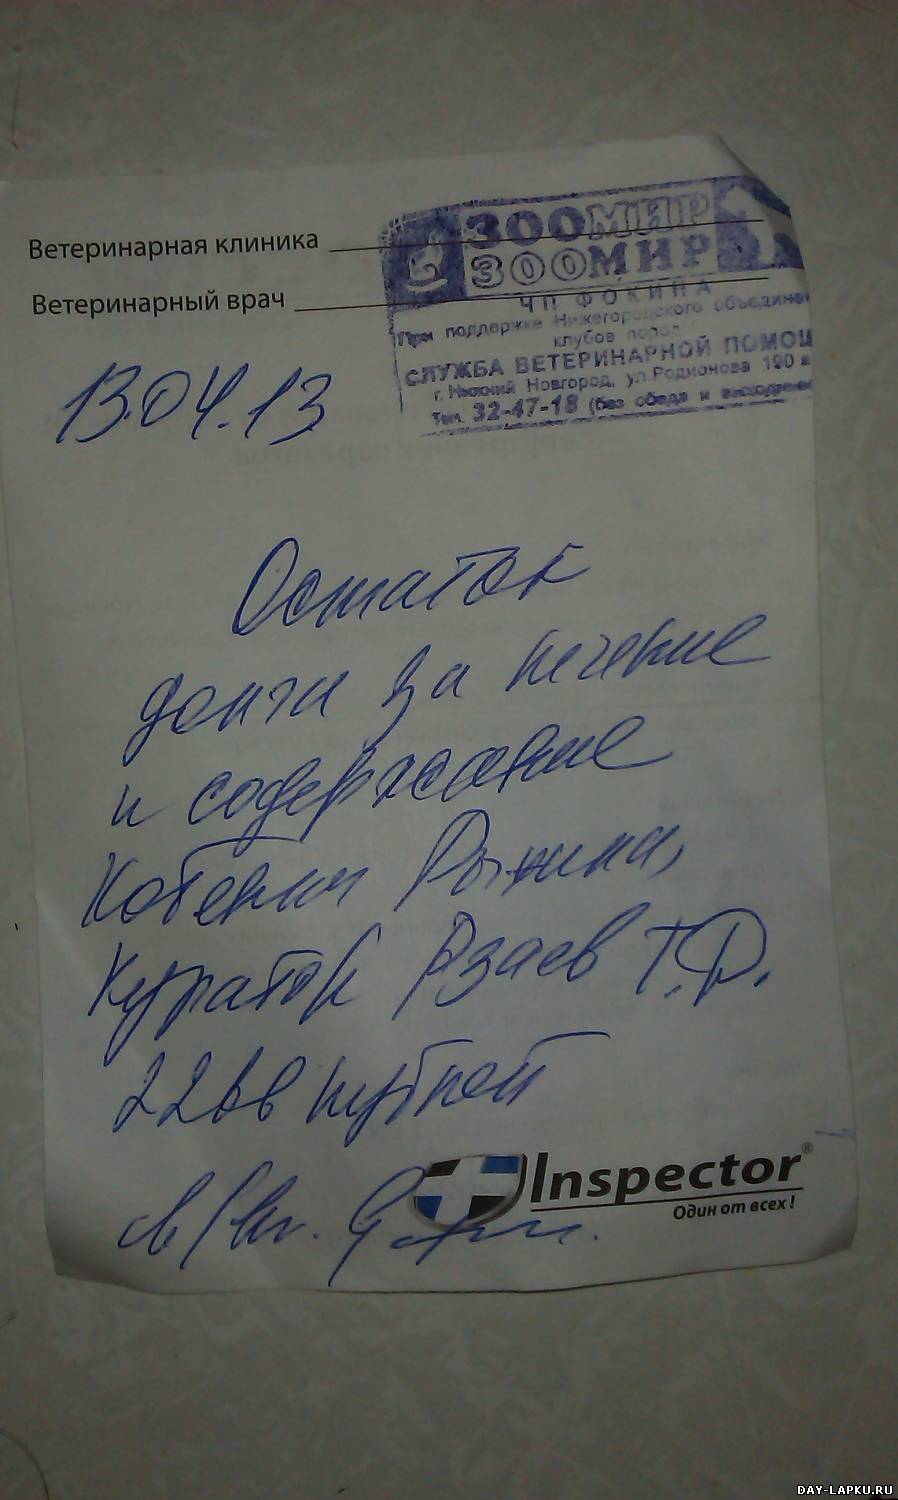 Ветеринарная клиника
Ветеринарный врач
ЗООМИР
ЗООМИР
ЧП ФОКИНА
При поддержке Нижегородского объединен
клубов пород
СЛУЖБА ВЕТЕРИНАРНОЙ ПОМОЩ
г. Нижний Новгород, ул. Родионова 190
Тел. 32-47-18 (без обеда и выходных
13.04.13
Остаток
долга за лечение
и содержание
Котенка Рыжика,
Куратор Рзаев Т.Р.
рублей
Inspector®
Один от всех!
DAY-LAPKU.RU